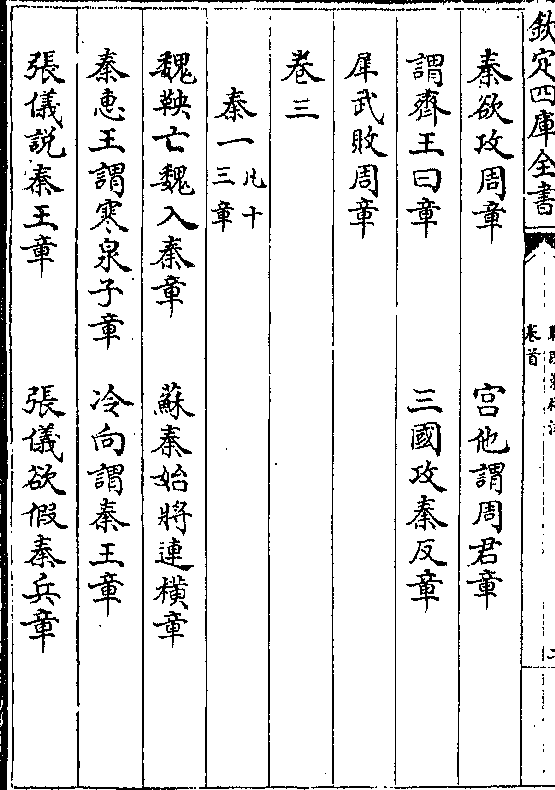 欽定四庫全書
卷首
秦欲攻周章 宫他謂周君章
謂齊王曰章 三國攻秦反章
犀武敗周章
卷三
秦一凡十三章
魏鞅亡魏入秦章 蘇秦始將連橫章
秦惠王謂寒泉子章 冷向謂秦王章
張儀說秦王章 張儀欲假秦兵章